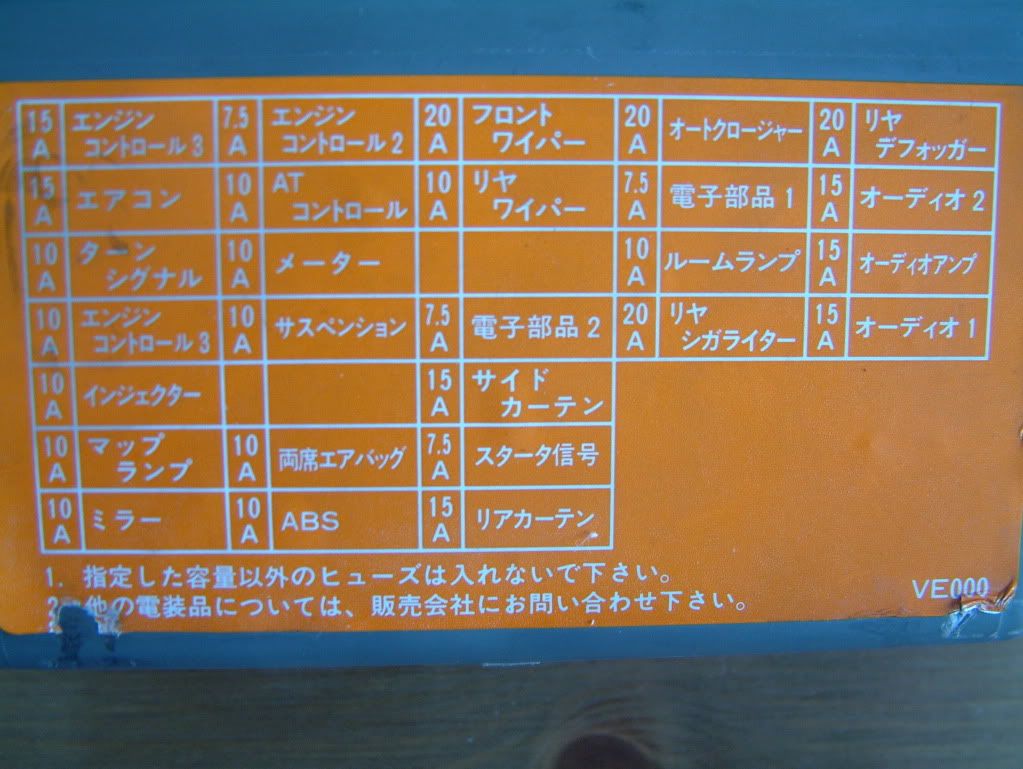 15 A エンジン コントロール3 7.5 A エンジン コントロール2 20 A フロント ワイパー 20 A オートクロージャー 20 A リヤ デフォッガー
15 A エアコン 10 A AT コントロール 10 A リヤ ワイパー 7.5 A 電子部品1 15 A オーディオ2
10 A ターン シグナル 10 A メーター 10 A ルームランプ 15 A オーディオアンプ
10 A エンジン コントロール3 10 A サスペンション 7.5 A 電子部品2 20 A リヤ シガライター 15 A オーディオ1
10 A インジェクター 15 A サイド カーテン
10 A マップ ランプ 10 A 両席エアバッグ 7.5 A スタータ信号
10 A ミラー 10 A ABS 15 A リアカーテン
1. 指定した容量以外のヒューズは入れないで下さい。
2. 他の電装品については、販売会社にお問い合わせ下さい。
VE000